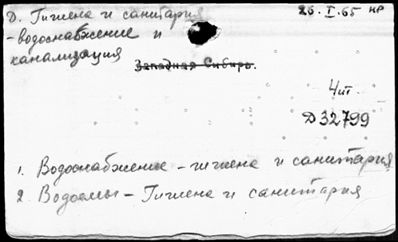 Д. Гигиена и санитария
26.I.65 НР
-водоснабжение и
канализация
Западная Сибирь.
4 ит
Д32799
1. Водоснабжение - гигиена и санитария
2. Водоемы - Гигиена и санитария